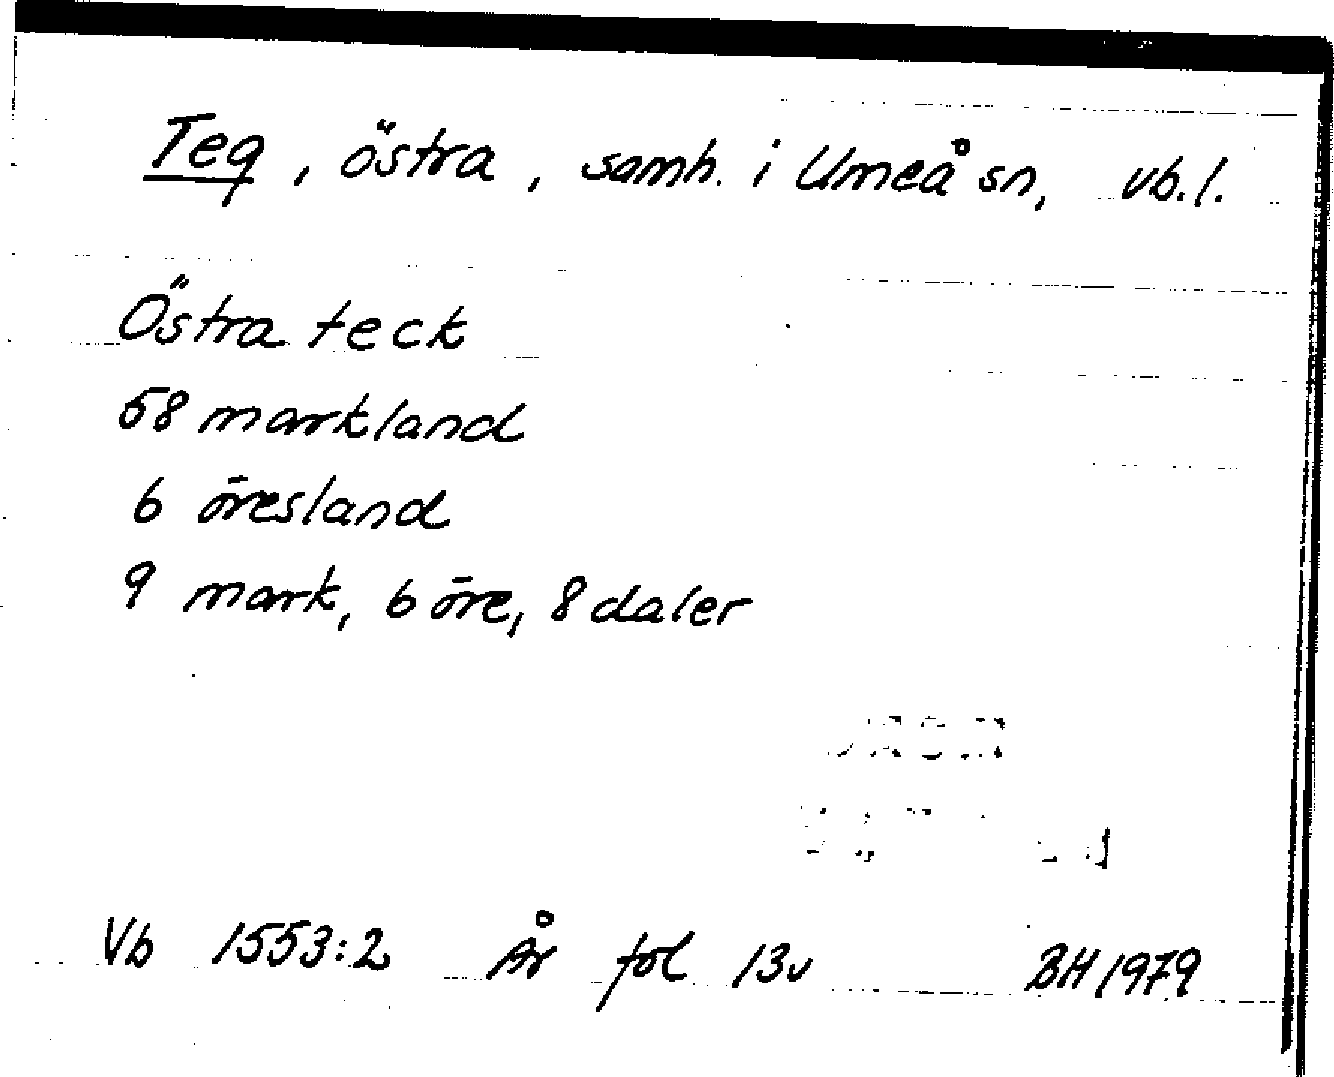 Teg, östra, samh. i Umeå sn, vb.l.
Östra teck
58 markland
6 öresland
9 mark, 6 öre, 8 daler
Vb 1553:2 År fol 13v BH 1979